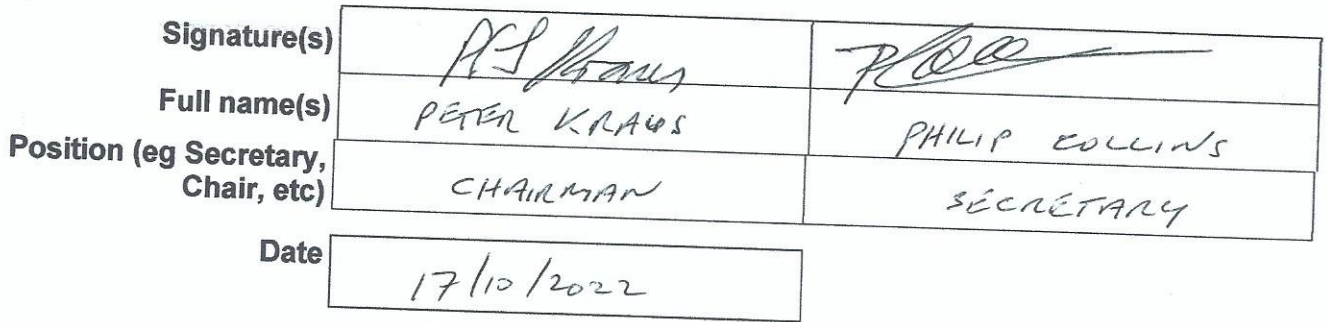 Signature(s) PJ Kraus
Full name(s) PETER KRAUS PHILIP COLLINS
Position (eg Secretary,
Chair, etc) CHAIRMAN SECRETARY
Date 17/10/2022